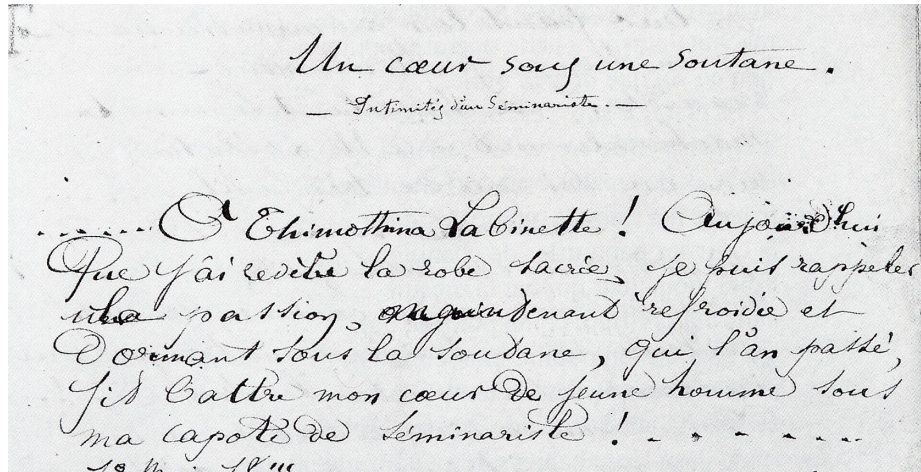 Un cœur sous une soutane.
— Intimités d'un Séminariste. —
....... O Thimothina Labinette ! Aujourd'hui
Que j'ai revêtu la robe sacrée, je puis rappeler
la passion, maintenant refroidie et
Dormant sous la soutane, qui l'an passé,
fit battre mon cœur de jeune homme sous
ma capote de séminariste ! . - . - . - . ....